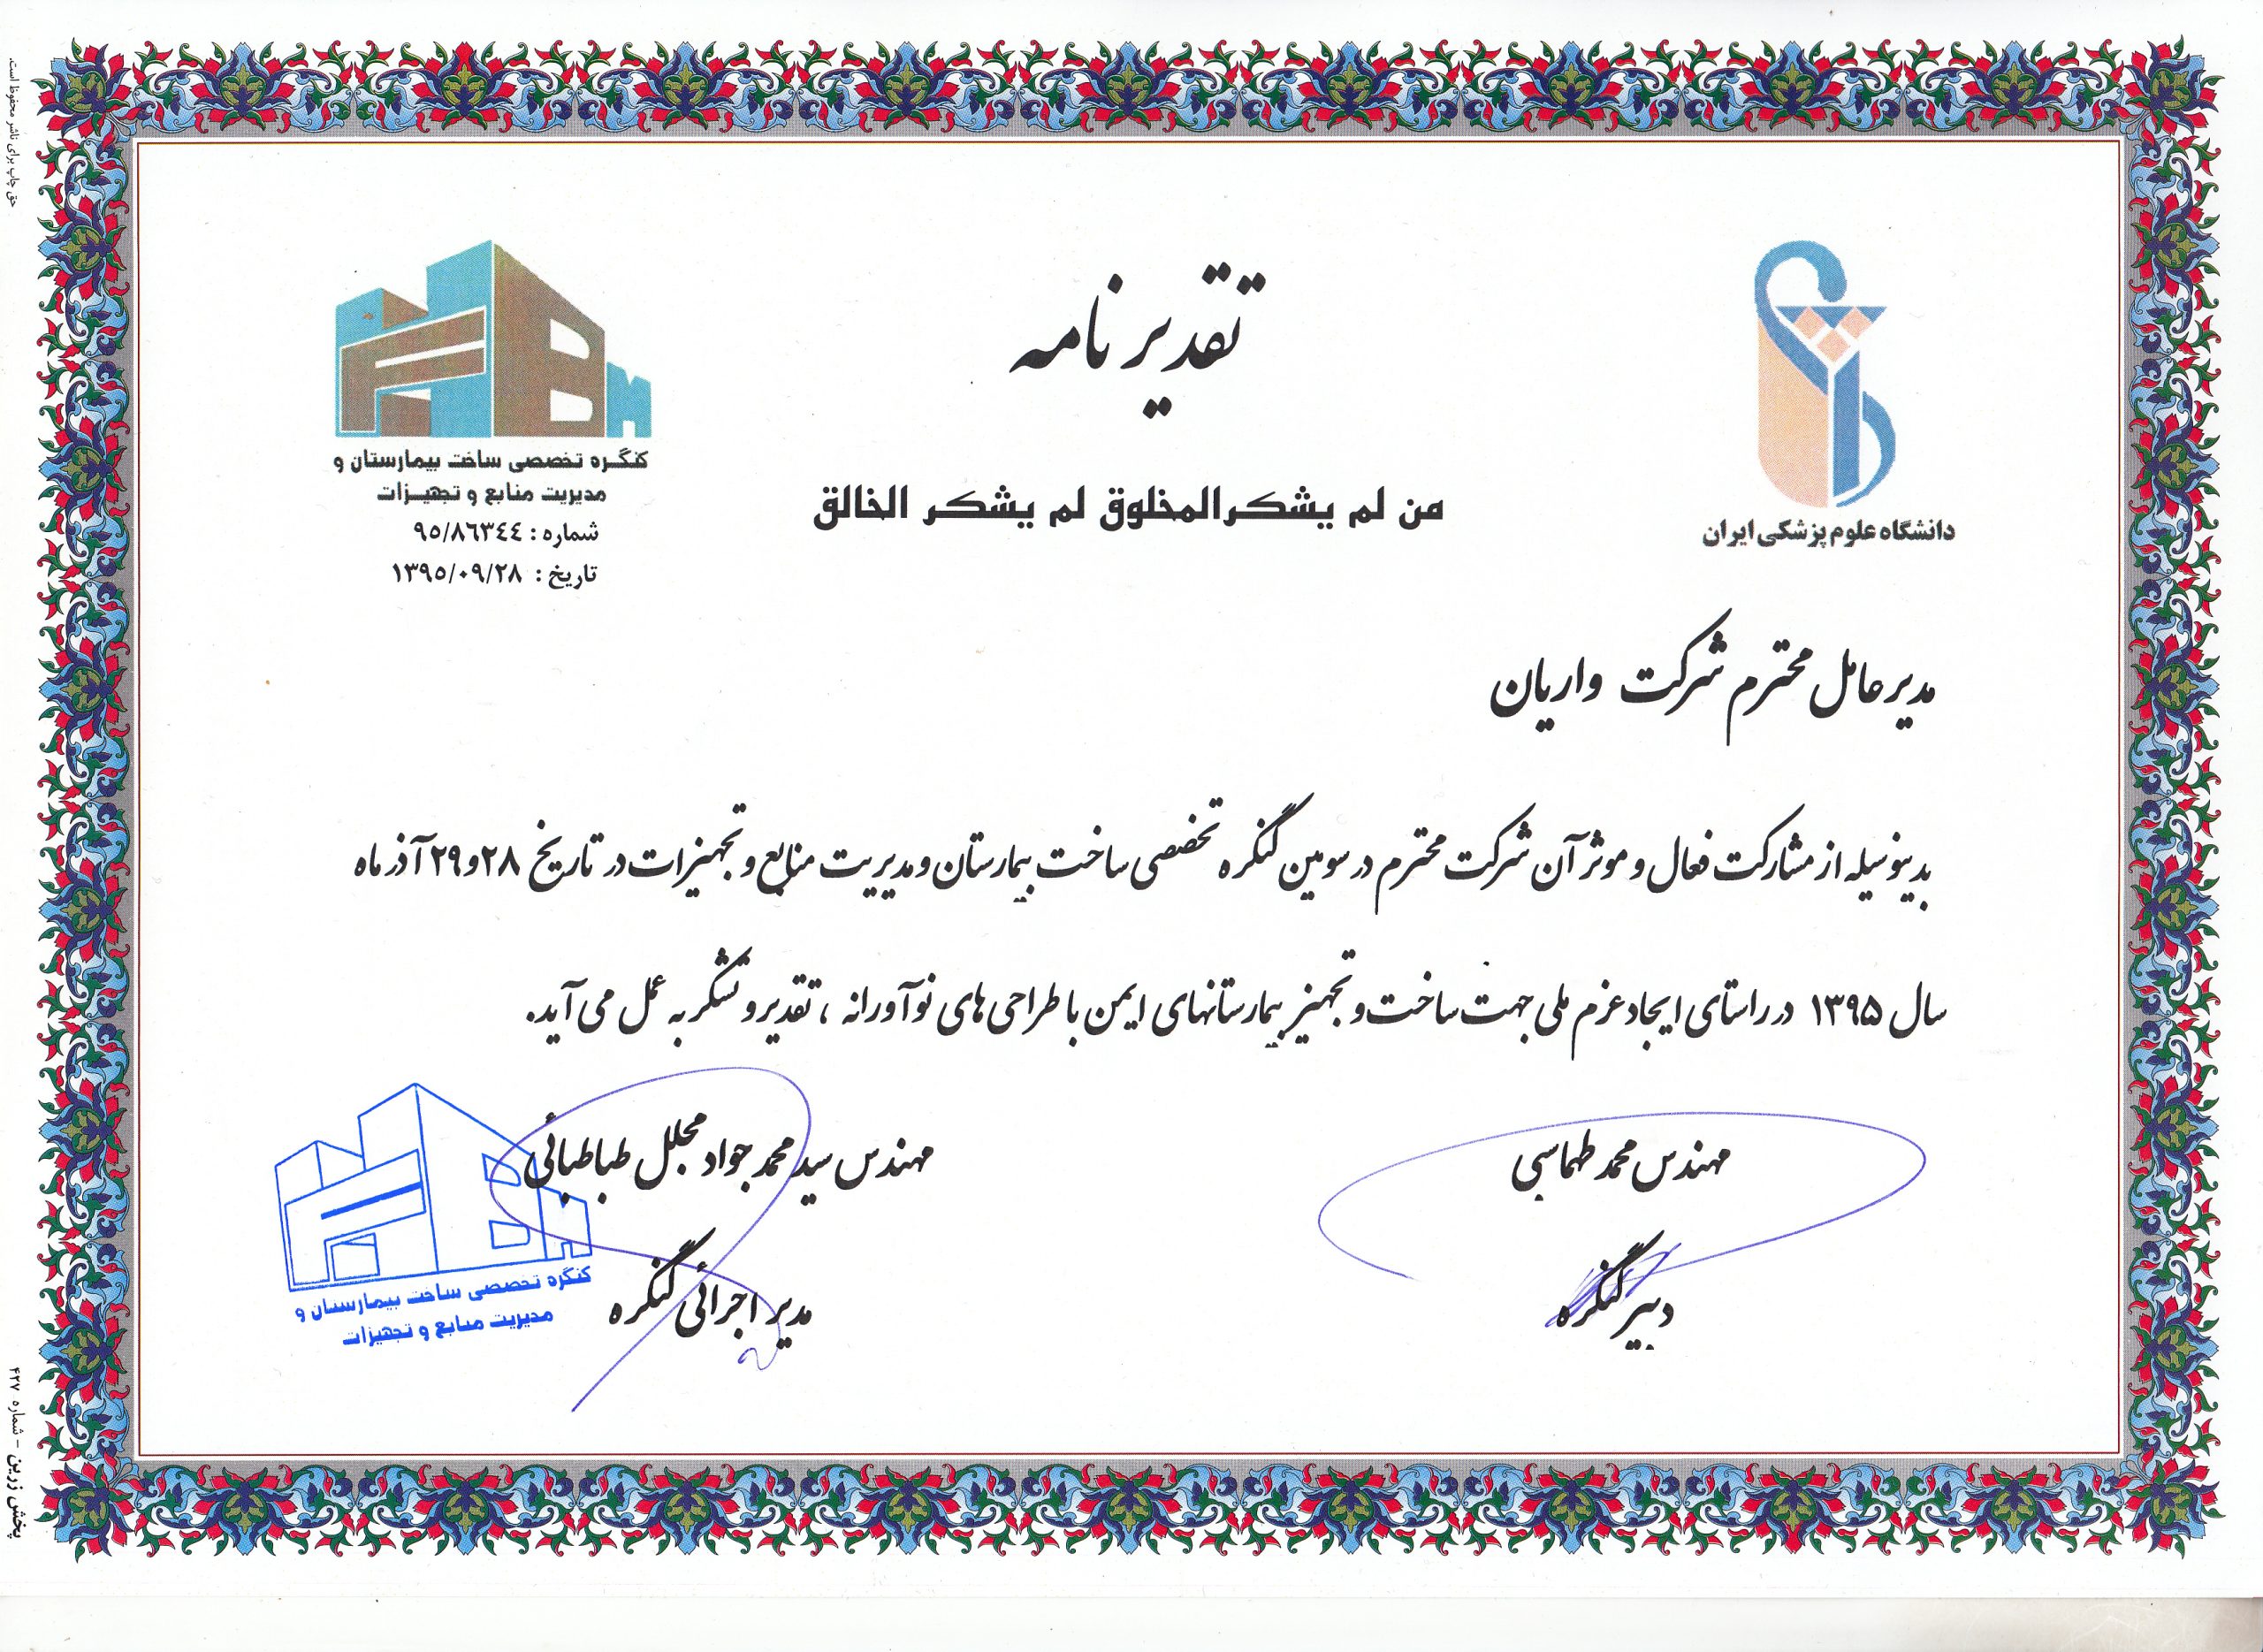 تقدیرنامه
من لم یشکرالمخلوق لم یشکر الخالق
دانشگاه علوم پزشکی ایران
کنگره تخصصی ساخت بیمارستان و
مدیریت منابع و تجهیزات
شماره : ۹۵/۸۶۳۴۴
تاریخ : ۱۳۹۵/۰۹/۲۸
مدیرعامل محترم شرکت واریان
بدینوسیله از مشارکت فعال و موثر آن شرکت محترم در سومین کنگره تخصصی ساخت بیمارستان و مدیریت منابع و تجهیزات در تاریخ ۲۸و۲۹ آذر ماه
سال ۱۳۹۵ در راستای ایجاد عزم ملی جهت ساخت و تجهیز بیمارستانهای ایمن با طراحی های نوآورانه ، تقدیر و تشکر به عمل می آید.
مهندس محمد طهماسبی
دبیر کنگره
مهندس سید محمد جواد مجلل طباطبائی
مدیر اجرائی کنگره
کنگره تخصصی ساخت بیمارستان و
مدیریت منابع و تجهیزات
حق چاپ برای ناشر محفوظ است.
پخش زرین - شماره ۴۲۷